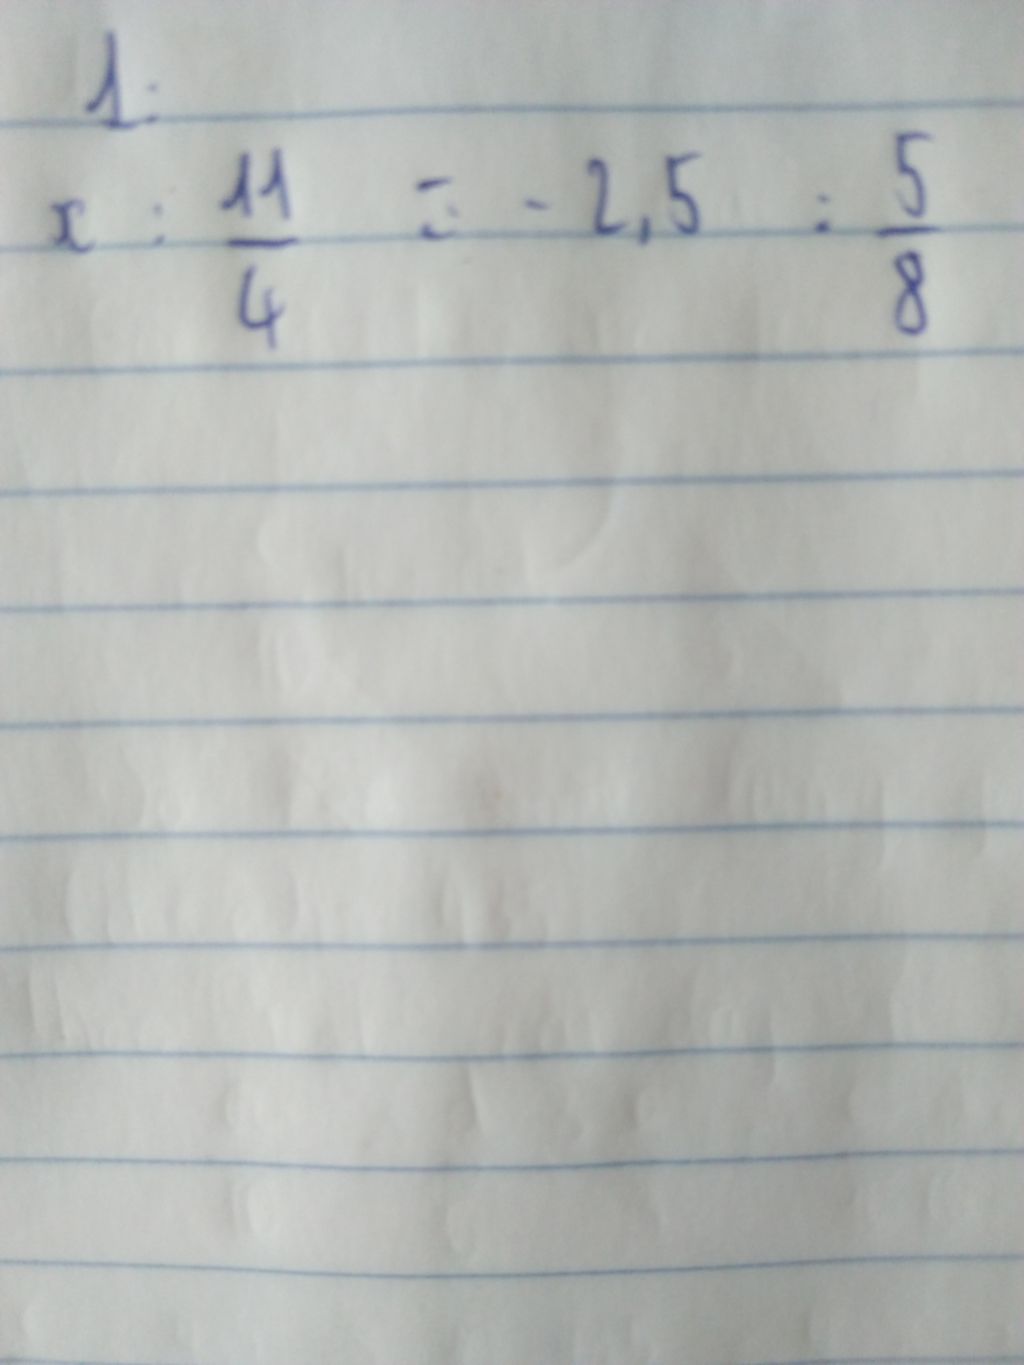 1:
x : 11/4 = - 2,5 : 5/8